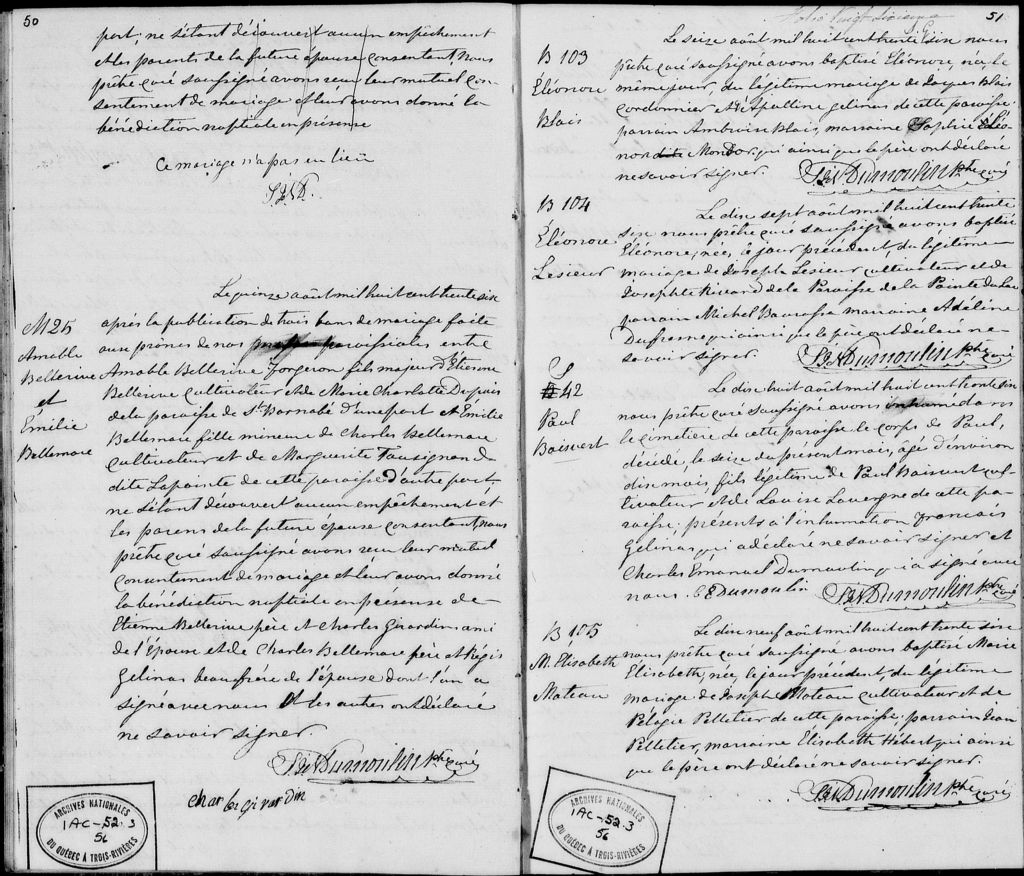 50
part, ne s'étant découvert aucun empêchement
et les parents de la future épouse consentant, Nous
prêtre curé soussigné avons reçu leur mutuel con-
sentement de mariage et leur avons donné la
bénédiction nuptiale en présense
Ce mariage n'a pas eu lieu
SND.
M25
Amable
Bellerive
et
Émilie
Bellemare
Le quinze août mil huit cent trente six
après la publication de trois bans de mariage faite
aux prônes de nos paroissiales entre
Amable Bellerive forgeron fils majeur d'Etienne
Bellerive cultivateur et de Marie Charlotte Dupuis
de la paroisse de St. Barnabé d'une part et Emilie
Bellemare fille mineure de Charles Bellemare
cultivateur et de Marguerite Vausignan
dite Lapointe de cette paroisse d'autre part
ne s'étant découvert aucun empêchement et
les parens de la future épouse consentant, Nous
prêtre curé soussigné avons reçu leur mutuel
consentement de mariage et leur avons donné
la bénédiction nuptiale en présense de
Etienne Bellerive père et Charles Girardin ami
de l'époux et de Charles Bellemare père et Régis
Gelinas beaufrère de l'épouse dont l'un a
signé avec nous et les autres ont déclaré
ne savoir signer.
SN Dumoulin Ptre curé
Charles girardin
ARCHIVES NATIONALES
1AC-52.3
56
DU QUÉBEC À TROIS-RIVIÈRES
Folio Vingt Sixième
51
B 103
Éléonore
Blais
Le seize août mil huit cent trente six nous
prêtre curé soussigné avons baptisé Eléonore, née le
même jour, du légitime mariage de Jacques Blais
cordonnier et d'Apolline gelinas de cette paroisse.
parrain Ambroise Blais, marraine Sophie Eléo-
nor dite Mondor qui ainsi que le père ont déclaré
ne savoir signer.
SN Dumoulin Ptre curé
B 104
Éléonore
Lesieur
Le dix sept août mil huit cent trente
six nous prêtre curé soussigné avons baptisé
Eléonore, née, le jour précédent, du légitime
mariage de Joseph Lesieur cultivateur et de
Josephte Rivard de la Paroisse de la Pointe du Lac
parrain Michel marraine Adéline
Dufresne qui ainsi que le père ont déclaré ne
savoir signer.
SN Dumoulin Ptre curé
S
42
Paul
Boisvert
Le dix huit août mil huit cent trente six
nous prêtre curé soussigné avons inhumé dans
le cimetière de cette paroisse le corps de Paul,
décédé, le seize du présent mois, âgé d'environ
dix mois, fils légitime de Paul Boisvert cul-
tivateur et de Louise Lavergne de cette pa-
roisse. présents à l'inhumation Francais
Gelinas qui a déclaré ne savoir signer et
Charles Emanuel Dumoulin qui a signé avec
nous. C E Dumoulin
SN Dumoulin Ptre curé
B 105
M. Elisabeth
Mateau
Le dix neuf août mil huit cent trente six
nous prêtre curé soussigné avons baptisé Marie
Elisabeth, née, le jour précédent, du légitime
mariage de Joseph Mateau cultivateur et de
Pélagie Pelletier de cette paroisse, parrain Jean
Pelletier, marraine Elisabeth Hébert qui ainsi
que le père ont déclaré ne savoir signer.
SN Dumoulin Ptre curé
ARCHIVES NATIONALES
1AC-52.3
56
DU QUÉBEC À TROIS-RIVIÈRES